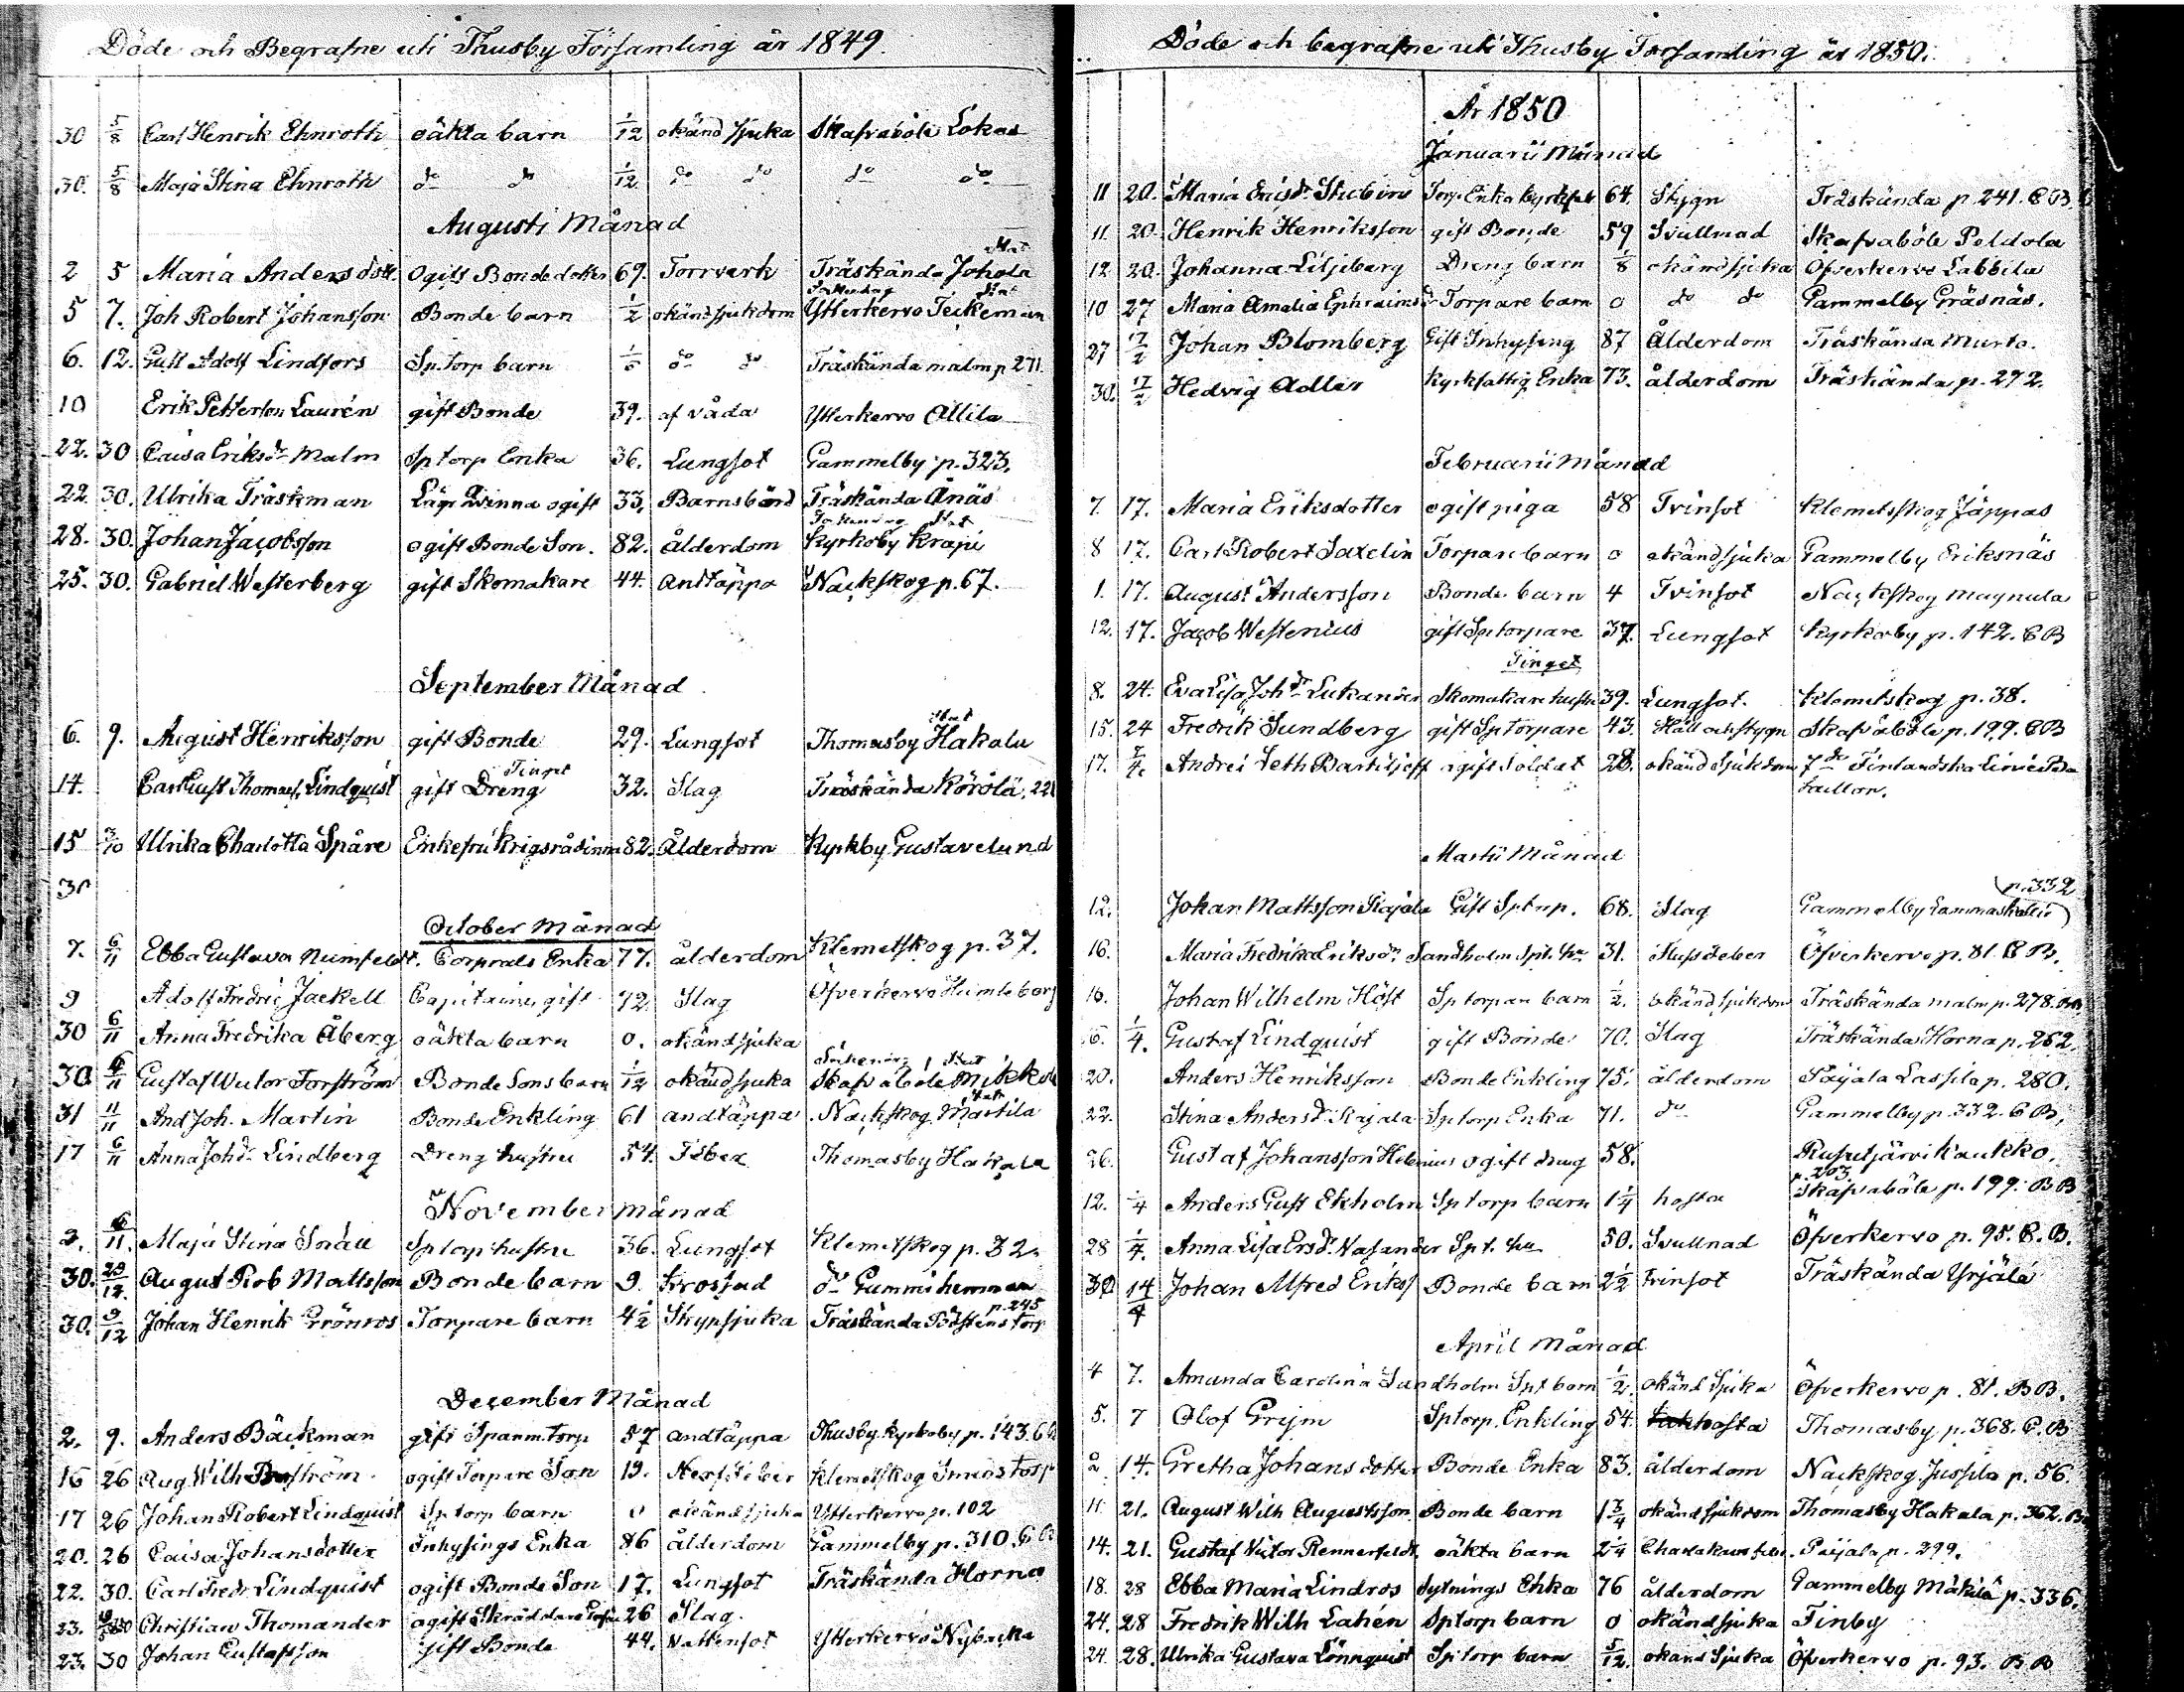 Döde och Begrafne uti Thusby Församling år 1849.
30 5/8 Carl Henrik Ehnroth oäkta barn 1/12 okänd sjuka Skafvaböle Lokas
30. 5/8 Maja Stina Ehnroth do do 1/12 do do do do
Augusti Månad
2 5 Maria Andersdott. Ogift Bondedotter 69. Torrverk Träskända Johola
5 7. Joh Robert Johansson Bonde barn 1/2 okänd sjukdom Ytterkervo Teikeman
6. 12. Gust Adolf Lindfors Sp torp barn do do Träskända malm p 271
10 Erik Petterson Laurén gift Bonde 39. af våda Ytterkervo Allila
22. 30 Caisa Eriksdr Malm Sp torp Enka 36. Lungsot Gammelby p. 323.
22 30. Ulrika Träskman Lägr Qvinna ogift 33. Barnsbörd Träskända Ånäs
28. 30. Johan Jacobsson ogift Bonde Son. 82. Ålderdom Kyrkoby Krapi
25. 30. Gabriel Westerberg gift Skomakare 44. Andtäppa Nackskog p. 67.
September Månad
6. 9. August Henriksson gift Bonde 29. Lungsot Thomasby Hakala
14. Carl Gust Thomas. Lindquist gift Dreng 32. Slag Träskända Körölä, 221
15 3/10 Ulrika Charlotta Spåre Enkefru Krigsrådinna 82. Ålderdom Kyrkby Gustavelund
30
October Månad
7. 6/11 Ebba Gustava Numfeldt. Corprals Enka 77. ålderdom Klemetskog p. 37.
9 Adolf Fredric Jackell Capitaine gift 72 Slag Öfverkervo Humleborg
30 6/11 Anna Fredrika Åberg oäkta barn 0. okänd sjuka
30 6/11 Gustaf Victor Forström Bonde Sons barn 1/12 okänd sjuka Skafvaböle Mikkola
31 11/11 And Joh. Martin Bonde Enkling 61 andtäppa Nackskog Martila
17 6/11 Anna Johdr Lindberg Dreng hustru 54. Feber Thomasby Hakala
November månad
2. 6/11. Maja Stina Snäll Sptorp hustru 36. Lungsot Klemetskog p. 32
30. 23/12 August Rob Mattsson Bonde barn 9. Krossad do Gummi hemman
30. 9/12 Johan Henrik Grönros Torpare barn 4 1/2 Skrypsjuka Träskända Pöstens torp p. 245
December Månad
2. 9. Anders Bäckman gift Spanm. torp 57 andtäppa Thusby Kyrkoby p. 143.
16 26 Aug Wilh ogift Torpare Son 19. Nerffeber Klemetskog Smens torp
17 26 Johan Robert Lindquist Sp torp barn 0 okänd sjuka Ytterkervo p. 102
20. 26 Caisa Johansdotter Inhysings Enka 86 ålderdom Gammelby p. 310
22. 30. Carl Fredr Lindquist ogift Bonde Son 17. Lungsot Träskända Horna
23. Christian Thomander ogift Skräddare 26 Slag.
23. 30 Johan Gustafsson gift Bonde 44. Vattensot Ytterkervo Nybacka
Döde och begrafne uti Thusby Församling år 1850.
År 1850
Januarii Månad
11 20. Maria Ericsdr Stubin Torp. Enka kyrkfat 64. Stygn Träskända p. 241. C B.
11. 20 Henrik Henriksson gift Bonde 59 Svullnad Skafvaböle Peldola
12 20. Johanna Liljeberg Dreng barn 1/8 okänd sjuka Öfverkervo Labbila
10 27 Maria Amalia Ephraimsdr Torpare barn 0 do do Gammelby Gräsnäs.
27 17/2 Johan Blomberg Gift Inhysing 87 Ålderdom Träskända Murto.
30. 17/2 Hedvig Adler Kyrkfattig Enka 73. ålderdom Träskända p. 272.
Februarii Månad
7. 17. Maria Eriksdotter ogift piga 58 Tvinsot Klemetskog Jäppas
8 17. Carl Robert Saxelin Torpare barn 0 okänd sjuka Gammelby Eriksnäs
1. 17. August Andersson Bonde barn 4 Tvinsot Nackskog Magnula
12. 17. Jacob Westenius gift Sp torpare 37. Lungsot Kyrkoby p. 142. C B
Tinget
8. 24. Eva Lisa Johdr Lukander Skomakare hustru 39. Lungsot. Klemetskog p. 38.
15. 24 Fredrik Sundberg gift Sp torpare 43. Håll och stygn Skafvaböle p. 199. C B
17. Andrei Seth Bartiljeff ogift Soldat 28. okänd sjukdom 7de Finlandska Linie Ba
taillon.
Martii Månad
12. Johan Mattsson Rajala Gift Sp torp. 68. Slag Gammelby Lammaskallio p. 332
16. Maria Fredrika Eriksdr Sandholm Spt. hu 31. Slufsfeber Öfverkervo p. 81. C B.
16. Johan Wilhelm Höst Sp torpare barn 1/2. okänd sjukdom Träskända malm p. 278.
16. 1/4. Gustaf Lindquist gift Bonde 70. Slag Träskända Horna p. 262.
20. Anders Henriksson Bonde Enkling 75. ålderdom Paijala Lassila p. 280.
22. Stina Andersdr Rajala Sp torp Enka 71. do Gammelby p. 332. C B.
26. Gustaf Johansson Helenius ogift dreng 58. Rusutjärvi Kaukko. p. 203.
12. 1/4 Anders Gust Ekholm Sp torp barn 1 1/4 hosta Skafvaböle p. 199. B B
28 1/4. Anna Lisa Ersdr Nasander Spt. hu 50. Svullnad Öfverkervo p. 95. C. B.
30 14/4 Johan Alfred Eriks Bonde barn 2 1/2 Tvinsot Träskända Yrjälä
April Månad
4 7. Amanda Carolina Sandholm Spt barn 1/2. okänd Sjuka Öfverkervo p. 81. B B.
5. 7 Olof Grijm Sptorp. Enkling 54. hosta Thomasby p. 368. C. B
2 14. Gretha Johansdotter Bonde Enka 83. ålderdom Nackskog. Jussila p. 56.
11 21. August Wilh Augustsson. Bonde barn 1 3/4 okänd sjukdom Thomasby Hakala p. 362.
14. 21. Gustaf Victor Rennerfeldt. oäkta barn 2 1/4 Charlakans feber. Paijala p. 299.
18. 28 Ebba Maria Lindros Sytnings Enka 76 ålderdom Gammelby Mäkilä p. 336.
24. 28 Fredrik Wilh Lahén Sptorp barn 0 okänd sjuka Finby
24. 28. Ulrika Gustava Lönnquist Sp torp barn 5/12. okänd Sjuka Öfverkervo p. 93. B B